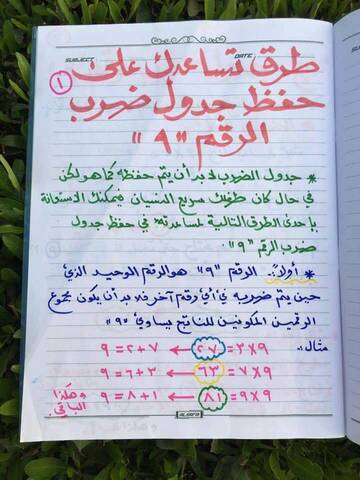 SUBJECT: DATE:
طرق تساعدك على
حفظ جدول ضرب
الرقم "9"
١
* جدول الضرب لا بد أن يتم حفظه كما هو لكن
في حال كان طفلك سريع النسيان فيمكنك الاستعانة
بإحدى الطرق التالية لمساعدته في حفظ جدول
ضرب الرقم "9".
* أولاً: الرقم "9" هو الرقم الوحيد الذي
حين يتم ضربه في أي رقم آخر فلا بد أن يكون مجموع
الرقمين المكونين للناتج يساوي "9"
مثال:
٩ = ٢+٧ ← ٢٧ = ٣×٩
٩ = ٦+٣ ← ٦٣ = ٧×٩
٩ = ٨+١ ← ٨١ = ٩×٩
وهكذا
الباقي